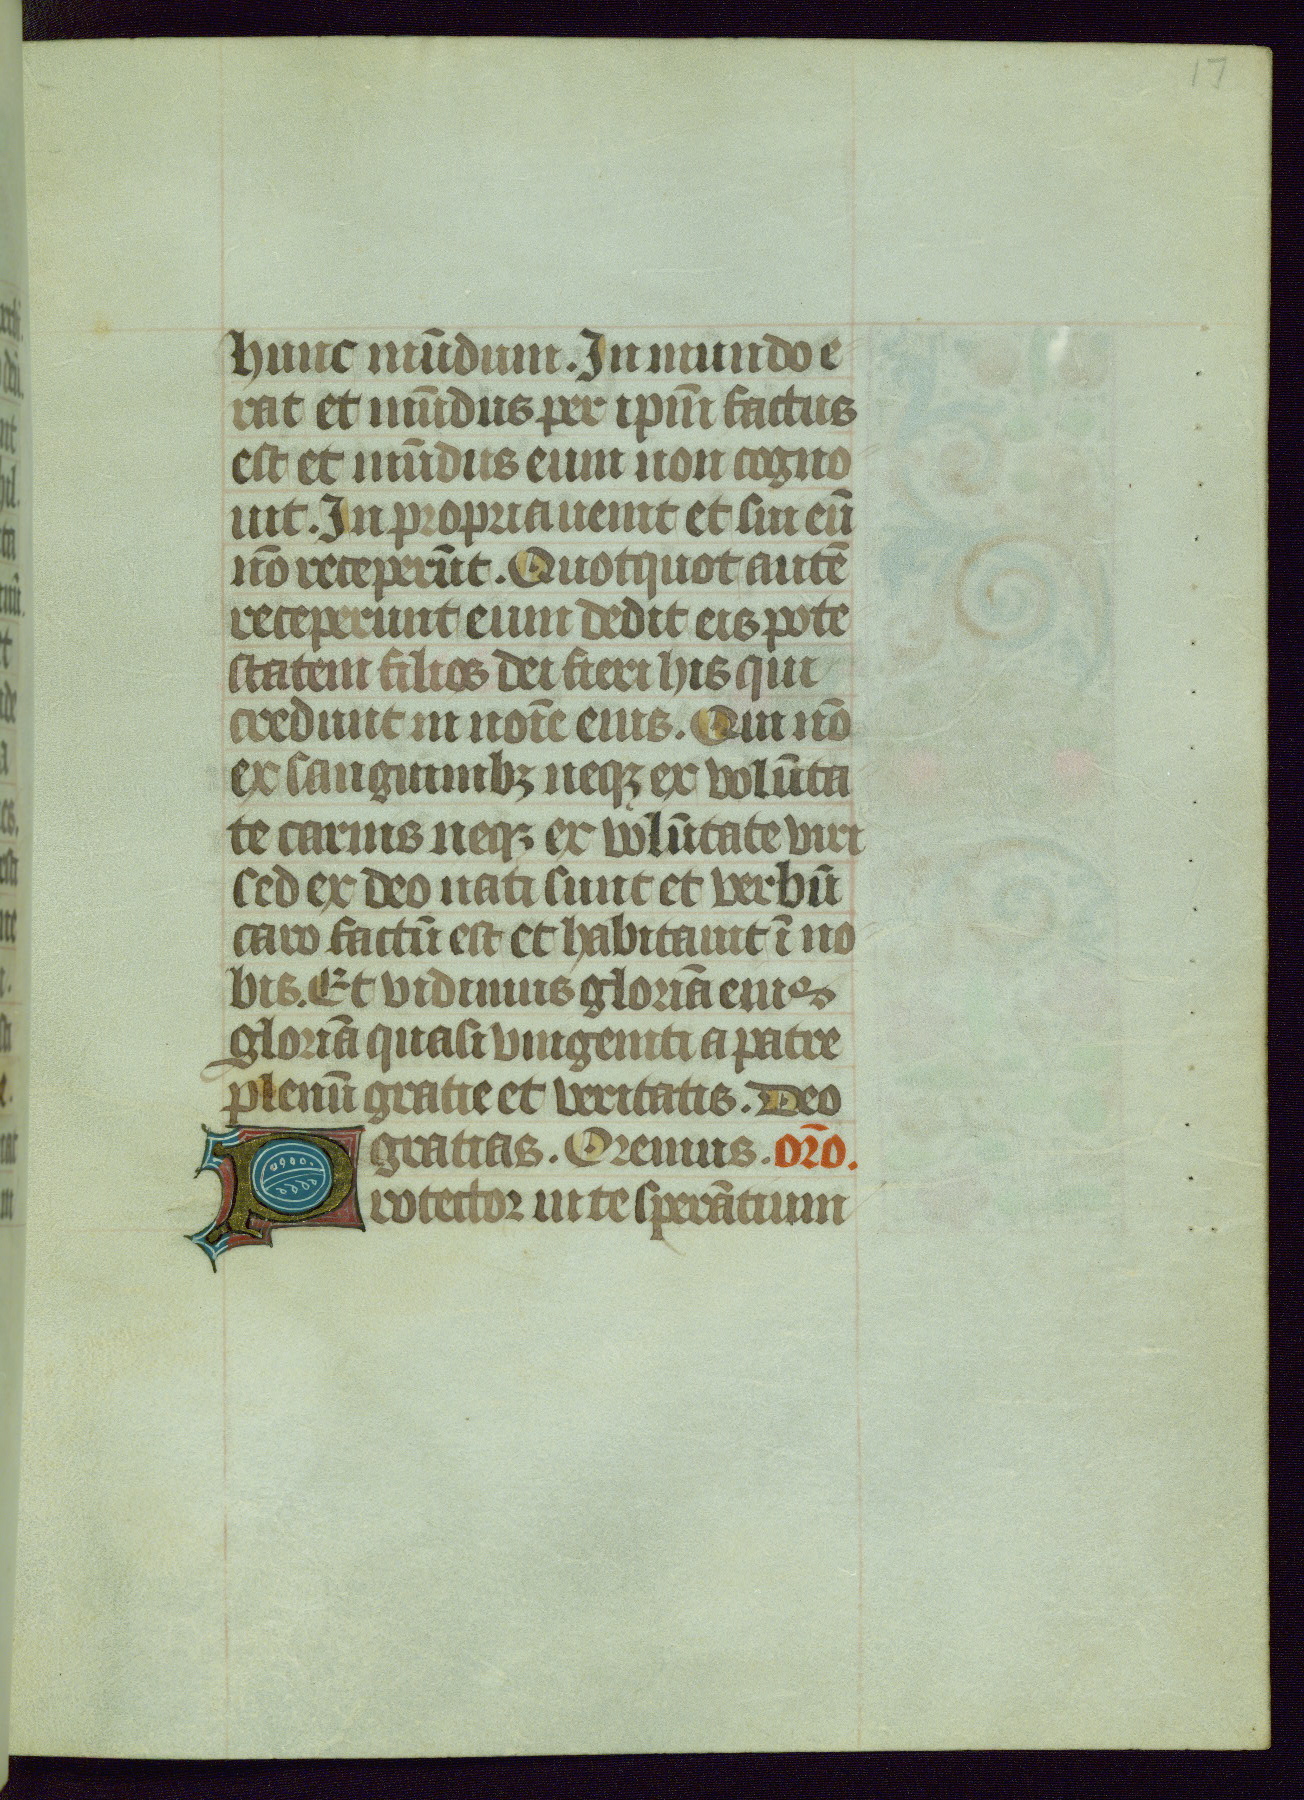 17
hunc mūdum. In mundo e
rat et mūdus per ipm̄ factus
est et mūdus eum non cogno
uit. In propria uenit et sui eū
nō receperūt. Quotquot autē
receperunt eum dedit eis pote
statem filios dei fieri his qui
credunt in noīe eius. Qui nō
ex sanguinibꝫ neqꝫ ex volūta
te carnis neqꝫ ex volūtate viri
sed ex deo nati sunt et verbū
caro factū est et habitauit ī no
bis. Et vidimus gloriā eius
gloriā quasi vnigeniti a patre
plenū gratie et veritatis. Deo
gratias. Oremus. orō.
Protector in te sperātium